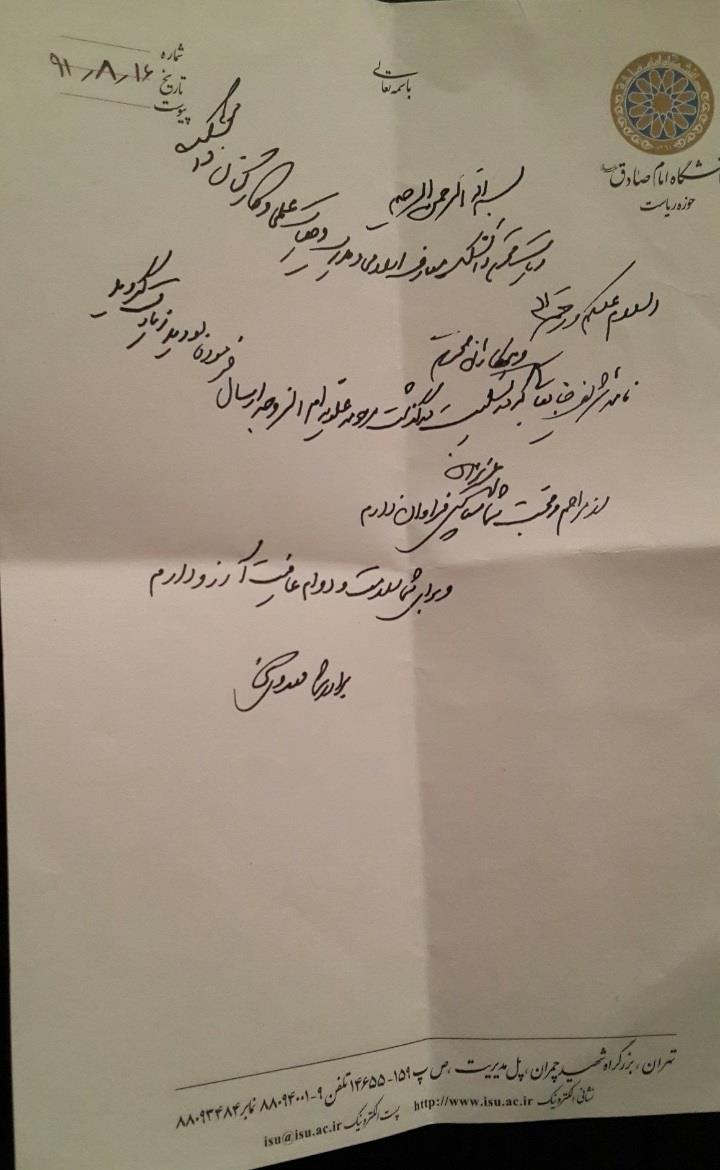 باسمه تعالی
شماره
تاریخ ۹۱/۸/۱۶
پیوست
دانشگاه امام صادق
حوزه ریاست
بسم الله الرحمن الرحیم
ریاست محترم دانشکده معارف اسلامی و مدیران و هیات علمی و کارکنان دانشکده
السلام علیکم و رحمة الله
و همکاران محترم
نامه شریف جنابعالی که در تسلیت درگذشت مرحومه علویه ام الزوجه ارسال فرموده بودید زیارت گردید
از مراحم و محبت شما عزیزان سپاس فراوان دارم
و برای شما سلامت و دوام عافیت آرزو دارم
برادر شما مهدوی کنی
تهران، بزرگراه شهید چمران، پل مدیریت، ص پ ۱۵۹-۱۴۶۵۵ تلفن ۹-۸۸۰۹۴۰۰۱ نمابر ۸۸۰۹۳۴۸۴
نشانی الکترونیک http://www.isu.ac.ir پست الکترونیک isu@isu.ac.ir